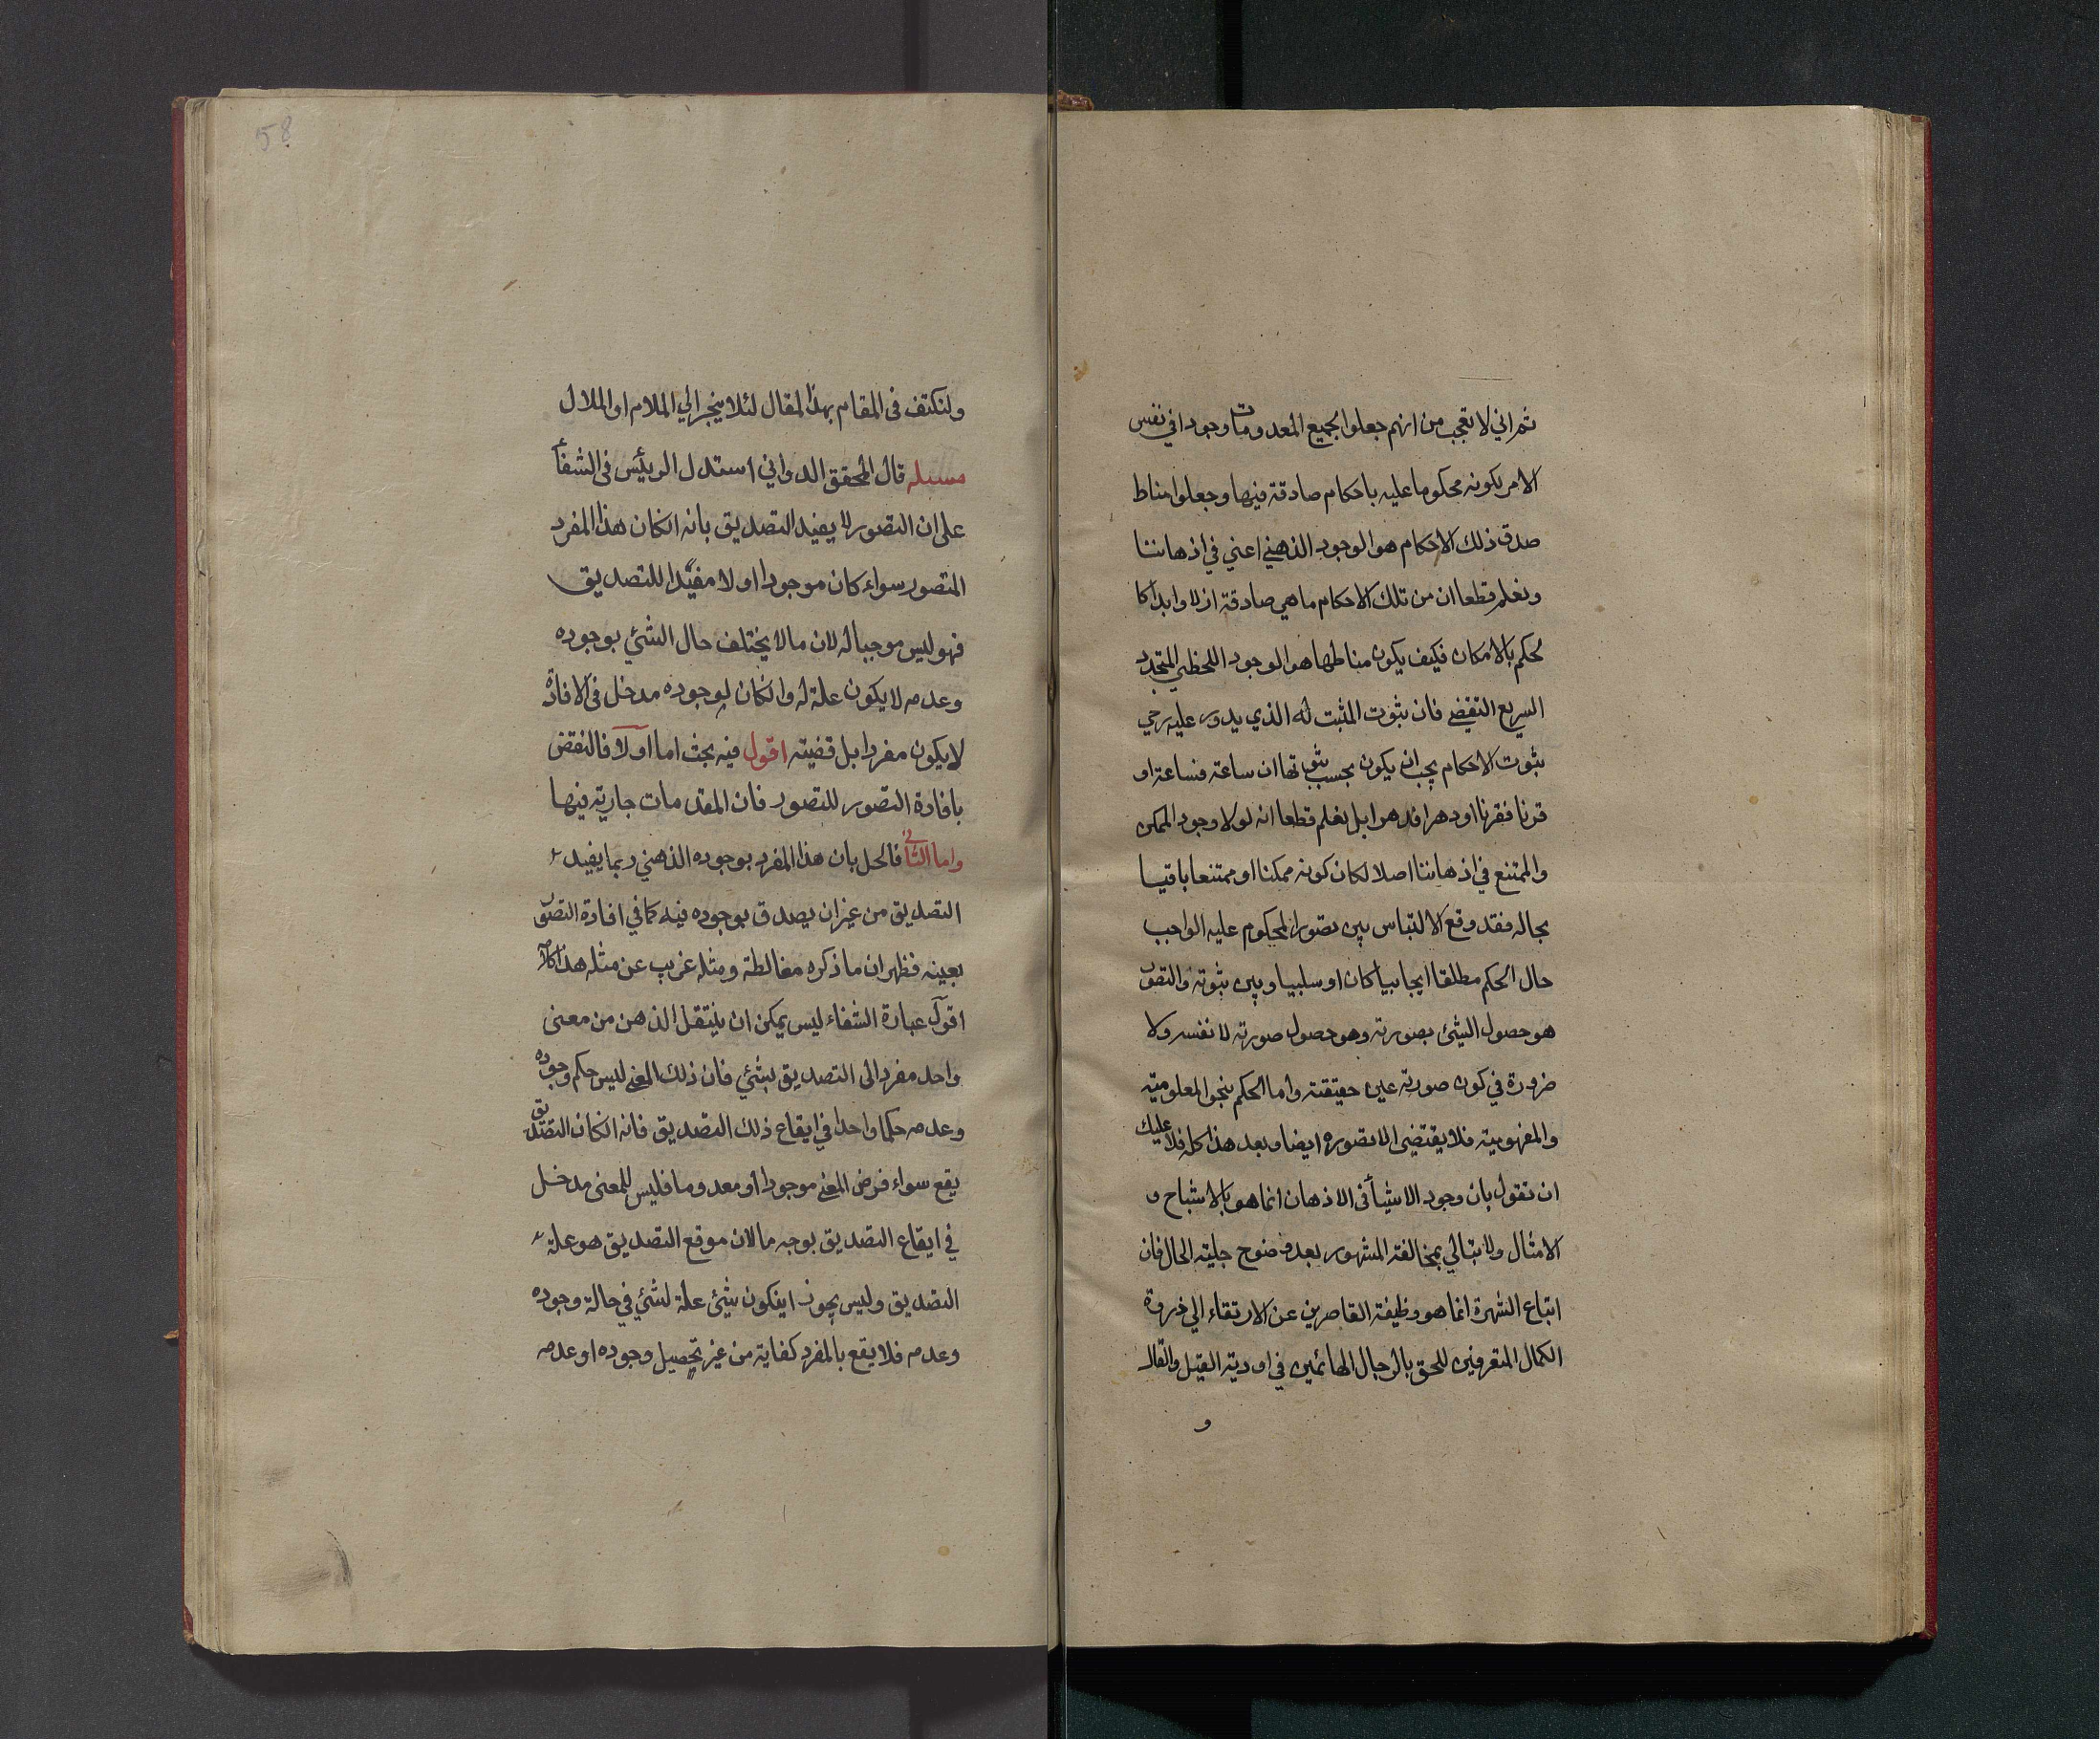 ثم اني لا تعجب من انهم جعلوا لجميع المعدومات وجودا في نفس
الامر لكونه محكوما عليه باحكام صادقة فيها وجعلوا مناط
صدق ذلك الاحكام هو الوجود الذهني اعني في اذهاننا
ونعلم قطعا ان من تلك الاحكام ما هي صادقة ازلا وابدا كا
لحكم بالامكان فكيف يكون مناطها هو الوجود اللحظي المتجدد
السريع التقضي فان ثبوت المثبت له الذي يدور عليه رحي
ثبوت الاحكام يجب ان يكون بحسب ثبوتها ان ساعة فساعة او
قرنا فقرنا او دهرا فدهرا بل نعلم قطعا انه لو لا وجود الممكن
والممتنع في اذهاننا اصلا لكان كونه ممكنا او ممتنعا باقيا
بحاله فقد وقع الالتباس بين تصور المحكوم عليه الواجب
حال الحكم مطلقا ايجابيا كان او سلبيا وبين ثبوته والتصور
هو حصول الشئ بصورته وهو حصول صورته لا نفسه ولا
ضرورة في كون صورته عين حقيقته واما الحكم بنحو المعلومية
والمفهومية فلا يقتضي الا تصوره ايضا وبعد هذا كله فلا عليك
ان تقول بان وجود الاشيأ في الاذهان انما هو بالاشباح و
الامثال ولا تبالي بمخالفة المشهور بعد وضوح جلية الحال فان
اتباع الشهرة انما هو وظيفة القاصرين عن الارتقاء الي ذروة
الكمال المتعرفين للحق بالرجال الهائمين في اودية القيل والقال
و
58
ولنكتف في المقام بهذا المقال لئلا ينجر الي الملام او الملال
مسئله قال المحقق الدواني استدل الرئيس في الشفأ
علي ان التصور لا يفيد التصديق بانه انكان هذا المفرد
المتصور سواء كان موجودا او لا مفيدا للتصديق
فهو ليس موجبا له لان ما لا يختلف حال الشئي بوجوده
وعدمه لا يكون علة له وانكان لوجوده مدخل في الافادة
لا يكون مفردا بل قضية اقول فيه بحث اما اولا فالنقض
بافادة التصور للتصور فان المقدمات جارية فيها
واما الثاني فالحل بان هذا المفرد بوجوده الذهني ربما يفيد
التصديق من غير ان يصدق بوجوده فيه كما في افادة التصور
بعينه فظهر ان ما ذكره مغالطة ومثله غريب عن مثله هذا كلامه
اقول عبارة الشفاء ليس يمكن ان ينتقل الذهن من معنى
واحد مفرد الى التصديق بشئي فان ذلك المعني ليس حكم وجوده
وعدمه حكما واحدا في ايقاع ذلك التصديق فانه انكان التصديق
يقع سواء فرض المعني موجودا او معدوما فليس للمعنى مدخل
في ايقاع التصديق بوجه ما لان موقع التصديق هو علة
التصديق وليس يجوز ان يكون شئ علة لشئي في حالة وجوده
وعدمه فلا يقع بالمفرد كفاية من غير تحصيل وجوده او عدمه